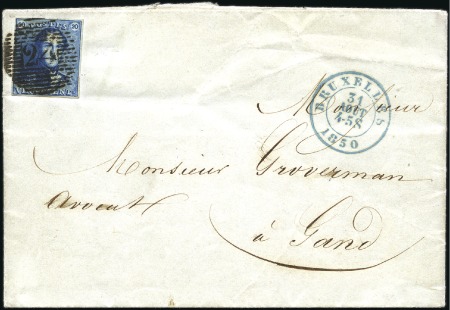 POSTES 20
24
VINGT CENT.
BRUXELLES
31
AOUT
4-5S
1850
Monsieur
Monsieur Groverman
avocat
à Gand